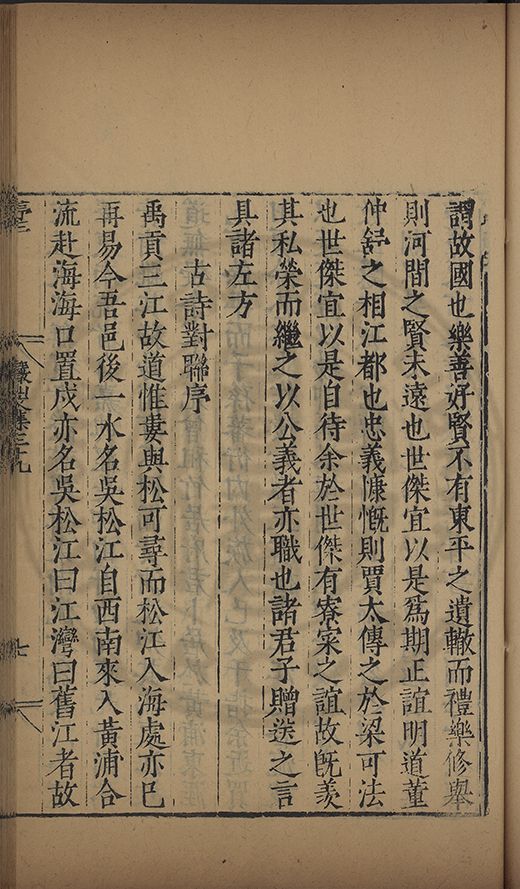 謂故國也樂善好賢不有東平之遺轍而禮樂修舉
則河間之賢未遠也世傑宜以是爲期正誼明道董
仲舒之相江都也忠義慷慨則賈太傅之於梁可法
也世傑宜以是自待余於世傑有寮寀之誼故旣羨
其私榮而繼之以公義者亦職也諸君子贈送之言
具諸左方
古詩對聯序
禹貢三江故道惟婁與松可尋而松江入海處亦已
再易今吾邑後一水名吳松江自西南來入黃浦合
流赴海海口置戍亦名吳松江曰江灣曰舊江者故
儼山集三十九
七